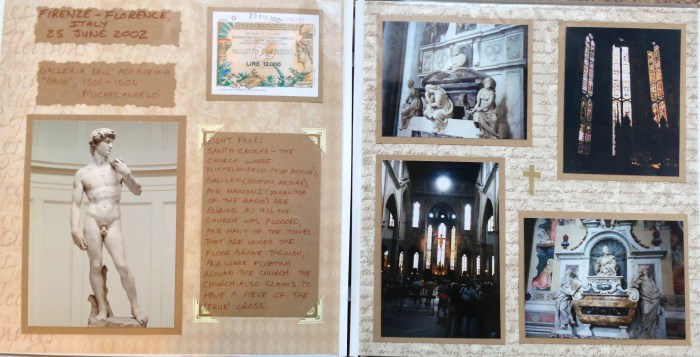 FIRENZE - FLORENCE,
ITALY
25 JUNE 2002
GALLERIA DELL' ACCADEMIA
"DAVID", 1501-1504
MICHELANGELO
LIRE 12.000
RIGHT PAGE:
SANTA CROCHE - THE
CHURCH WHERE
MICHELANGELO (TOP PICTURE),
GALILEO (BOTTOM PICTURE),
AND MARCONI (INVENTOR
OF THE RADIO) ARE
BURIED. IN 1966 THE
CHURCH WAS FLOODED,
AND MANY OF THE TOMBS
THAT ARE UNDER THE
FLOOR BROKE THROUGH,
AND WERE FLOATING
AROUND THE CHURCH. THE
CHURCH ALSO CLAIMS TO
HAVE A PIECE OF THE
TRUE CROSS.